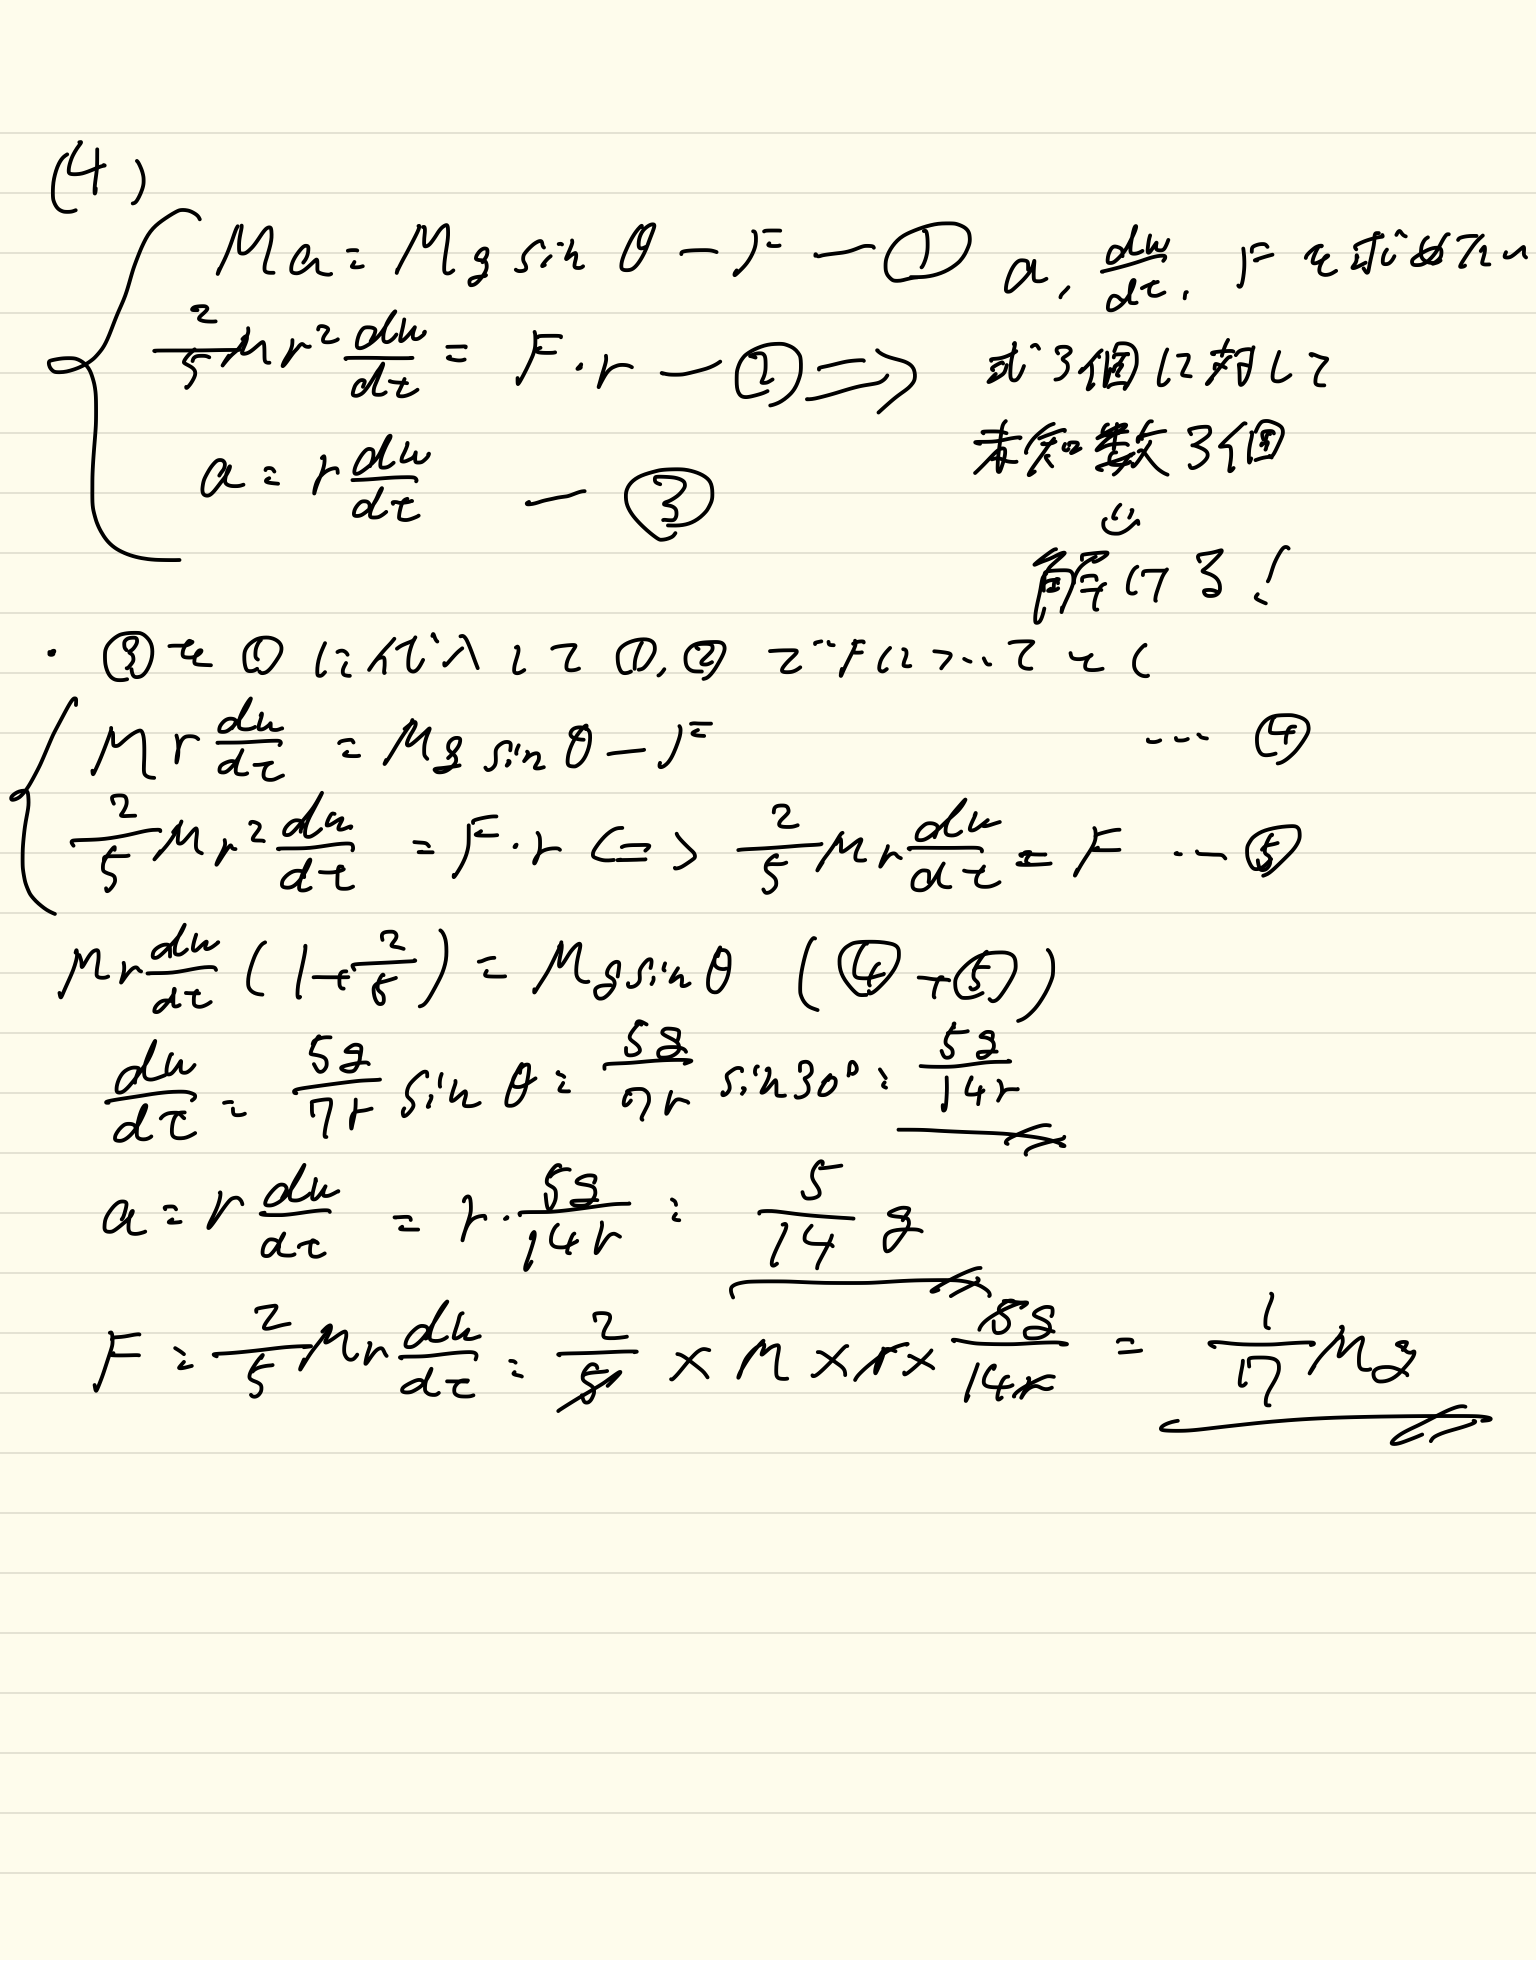 (4)
Ma = Mg sin θ − F — ① a, dω/dt, F を求めたい
2/5 Mr² dω/dt = F・r — ② ⇒ 式3個に対して
未知数3個
a = r dω/dt — ③
解ける!
・③を①に代入して①,②でFについてとく
Mr dω/dt = Mg sin θ − F … ④
2/5 Mr² dω/dt = F・r <=> 2/5 Mr dω/dt = F … ⑤
Mr dω/dt (1 + 2/5) = Mg sin θ (④+⑤)
dω/dt = 5g/7r sin θ = 5g/7r sin 30° = 5g/14r
a = r dω/dt = r・5g/14r = 5/14 g
F = 2/5 Mr dω/dt = 2/5 × M × r × 5g/14r = 1/7 Mg